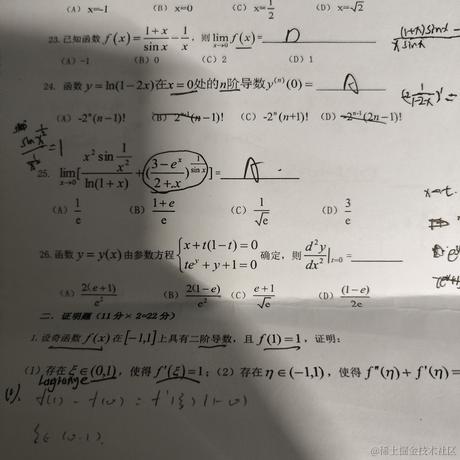 (A) x=-1 (B) x=0 (C) x=1/2 (D) x=√2
23. 已知函数 f(x)=(1+x)/sin x - 1/x, 则 lim_{x→0} f(x)= D
(A) -1 (B) 0 (C) 2 (D) 1
24. 函数 y=ln(1-2x)在x=0处的n阶导数y^(n)(0)= A
(A) -2^n(n-1)! (B) 2^{n-1}(n-1)! (C) -2^n(n+1)! (D) -2^{n-1}(2n-1)!
25. lim_{x→0}[x² sin(1/x²)/ln(1+x)+((3-e^x)/(2+x))^{1/sin x}]= A
(A) 1/e (B) (1+e)/e (C) 1/√e (D) 3/e
26. 函数 y=y(x) 由参数方程{x+t(1-t)=0 te^y+y+1=0 确定, 则 d²y/dx²|_{t=0}=
(A) 2(e+1)/e² (B) 2(1-e)/e² (C) (e+1)/√e (D) (1-e)/2e
二. 证明题 (11分×2=22分)
1. 设奇函数 f(x) 在 [-1,1] 上具有二阶导数, 且 f(1)=1, 证明:
(1) 存在 ξ∈(0,1), 使得 f'(ξ)=1; (2) 存在 η∈(-1,1), 使得 f''(η)+f'(η)=
Lagrange
(1). f(1)-f(0)=f'(ξ)(1-0)
ξ∈(0,1).
@稀土掘金技术社区